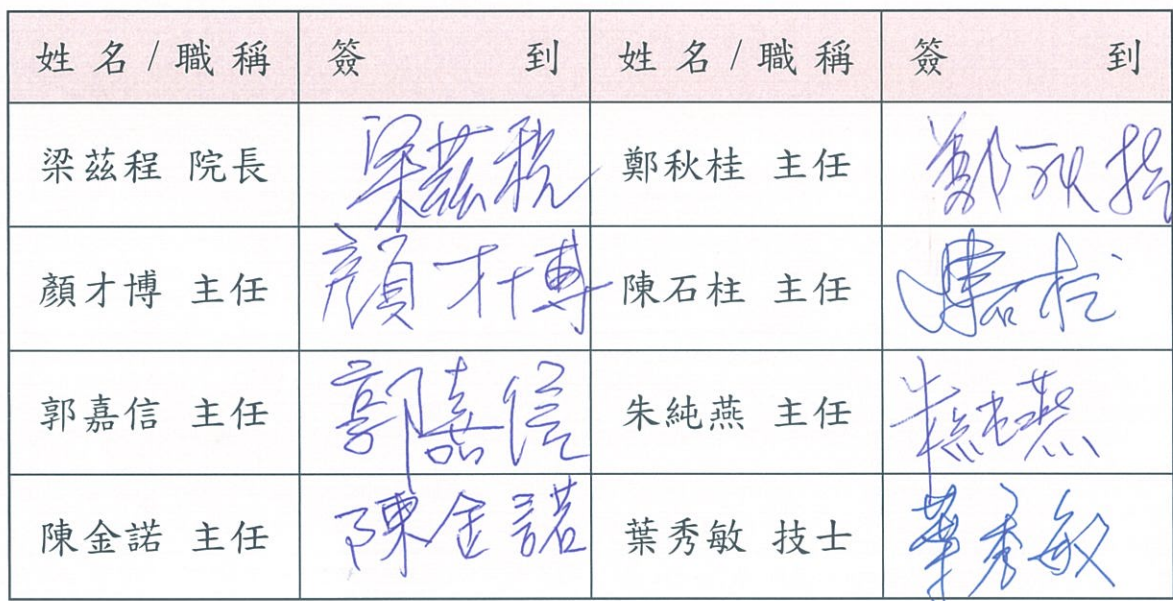 姓名/職稱 簽到 姓名/職稱 簽到
梁茲程 院長 梁茲程 鄭秋桂 主任 鄭秋桂
顏才博 主任 顏才博 陳石柱 主任 陳石柱
郭嘉信 主任 郭嘉信 朱純燕 主任 朱純燕
陳金諾 主任 陳金諾 葉秀敏 技士 葉秀敏